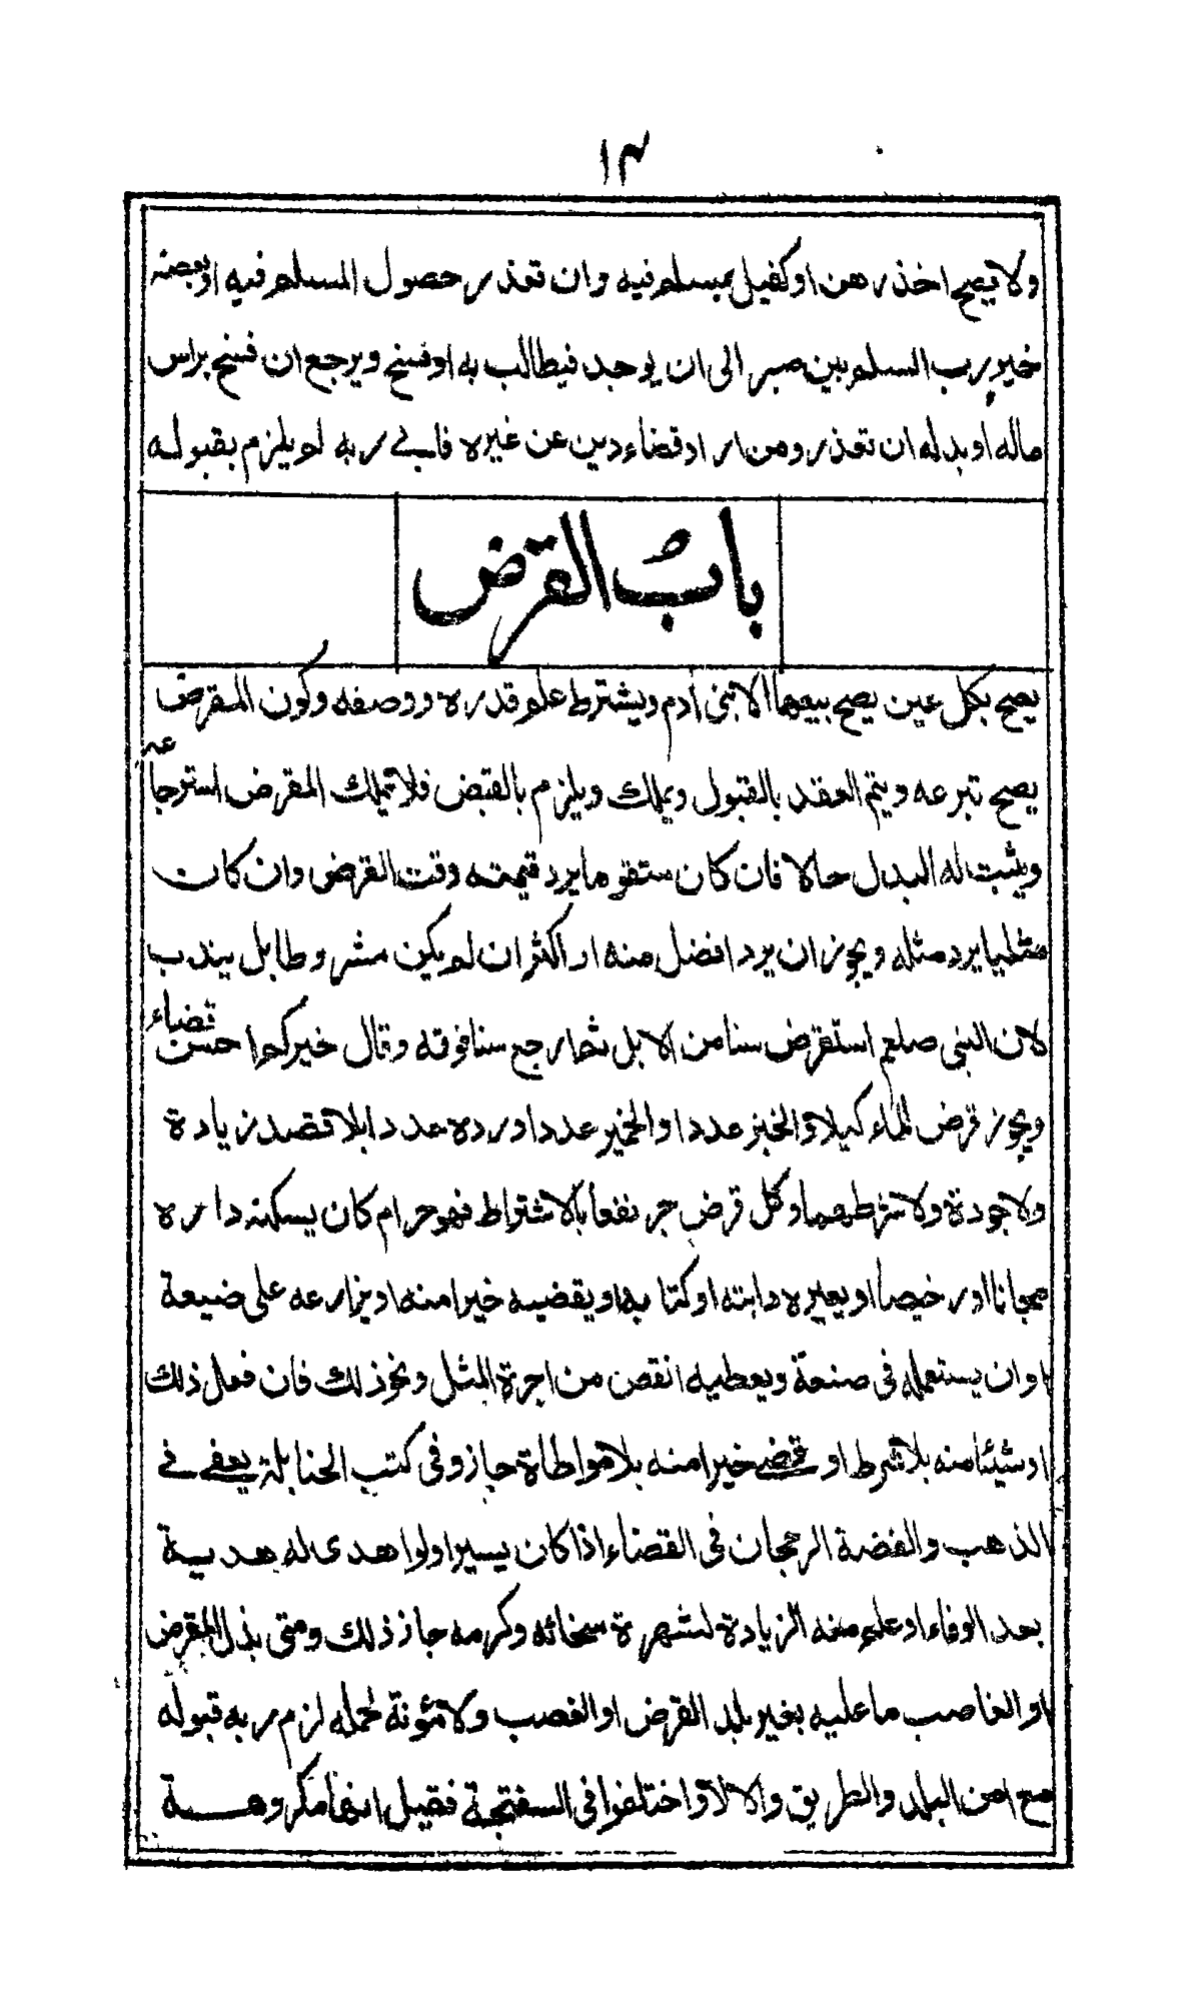 ١٣
ولا يصح اخذ رهن او كفيل بمسلم فيه وان تعذر حصول المسلم فيه او بعضه
خير رب السلم بين صبر الى ان يوجد فيطالب به او فسخ ويرجع ان فسخ براس
ماله او بدله ان تعذر ومن اراد قضاء دين عن غيره فابى ربه لم يلزم بقبوله
باب القرض
يصح بكل عين يصح بيعها الا بنى آدم ويشترط علم قدره ووصفه وكون المقرض
يصح تبرعه ويتم العقد بالقبول ويملك ويلزم بالقبض فلا يملك المقرض استرجاعه
ويثبت له البدل حالا فان كان متقوما يرد قيمته وقت القرض وان كان
مثليا يرد مثله ويجوز ان يرد افضل منه او اكثر ان لم يكن مشروطا بل يندب
لان النبى صلعم استقرض سنا من الابل ثم ارجع سنا فوقه وقال خيركم احسن قضاء
ويجوز قرض الماء كيلا والخبز عددا والخمير عددا ورده عددا بلا قصد زيادة
ولا جودة ولا شرطهما وكل قرض جر نفعا بالاشتراط فهو حرام كان يسكنه داره
مجانا او رخيصا او يعيره دابته او كتابه او يقضيه خيرا منه او يزارعه على ضيعة
او ان يستعمله فى صنعة ويعطيه انقص من اجرة المثل ونحو ذلك فان فعل ذلك
او شيئا منه بلا شرط او قضى خيرا منه بلا مواطاة جاز وفى كتب الحنابلة يعفى فى
الذهب والفضة الرجحان فى القضاء اذا كان يسيرا ولو اهدى له هدية
بعد الوفاء او علم منه الزيادة لشهرة سخائه وكرمه جاز ذلك ومتى بذل المقرض
او الغاصب ما عليه بغير بلد القرض او الغصب ولا مئونة لحمله لزم ربه قبوله
مع امن البلد والطريق والا لا واختلفوا فى السفتجة فقيل انها مكروهة